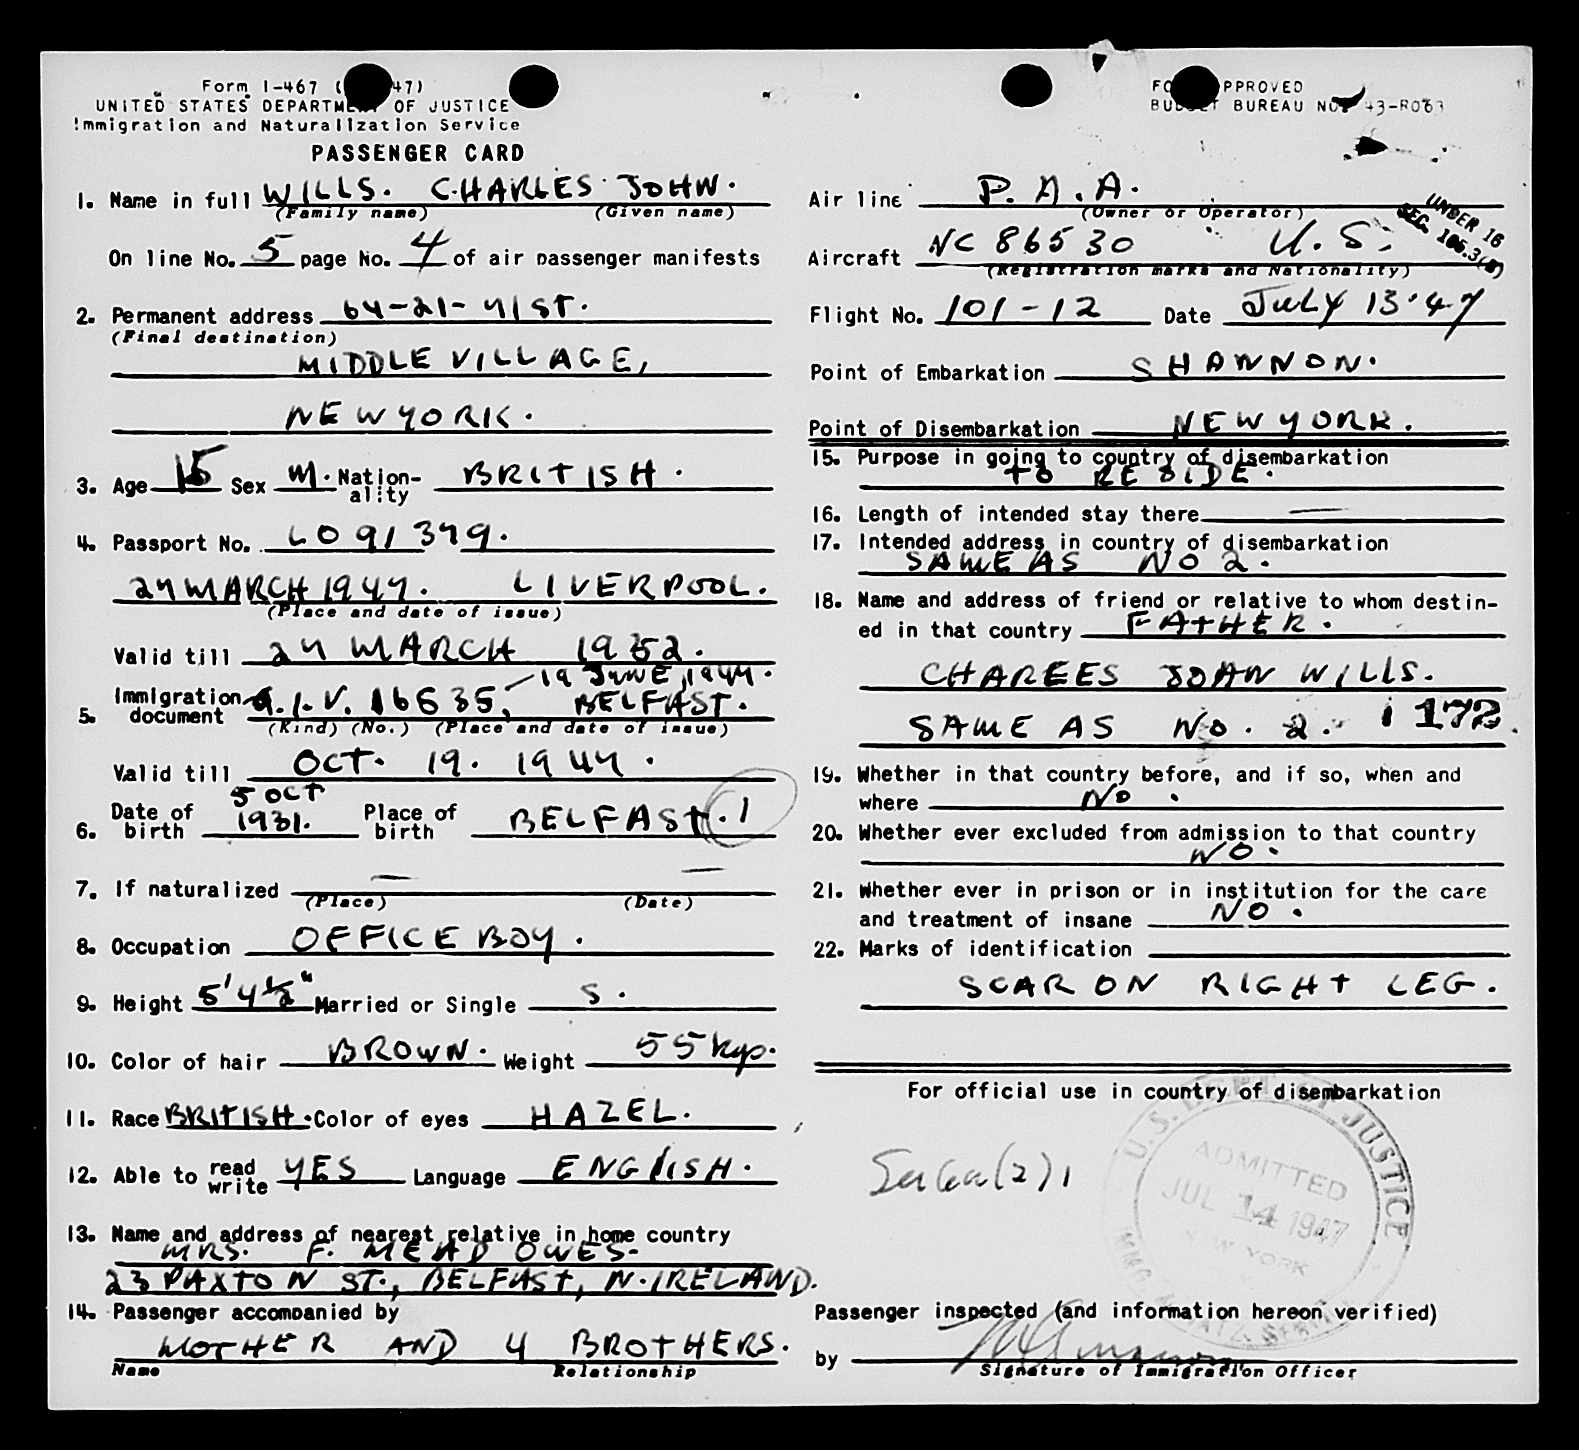 Form I-467 ( 47)
UNITED STATES DEPARTMENT OF JUSTICE
Immigration and Naturalization Service
PASSENGER CARD
1. Name in full WILLS. CHARLES JOHN.
(Family name) (Given name)
On line No. 5 page No. 4 of air passenger manifests
2. Permanent address 64-21-71 ST.
(Final destination)
MIDDLE VILLAGE,
NEW YORK.
3. Age 15 Sex M. Nation-ality BRITISH.
4. Passport No. LO 91379.
27 MARCH 1947. LIVERPOOL.
(Place and date of issue)
Valid till 27 MARCH 1952.
19 JUNE, 1947.
5. Immigration document Q.I.V. 16635, BELFAST.
(Kind) (No.) (Place and date of issue)
Valid till OCT. 19. 1947.
6. Date of birth 5 OCT 1931. Place of birth BELFAST. 1
7. If naturalized — —
(Place) (Date)
8. Occupation OFFICE BOY.
9. Height 5' 4½" Married or Single S.
10. Color of hair BROWN. Weight 55 kgs.
11. Race BRITISH. Color of eyes HAZEL.
12. Able to read write YES Language ENGLISH.
13. Name and address of nearest relative in home country
MRS. F. MEAD OWES-
23 PAXTON ST., BELFAST, N. IRELAND.
14. Passenger accompanied by
MOTHER AND 4 BROTHERS.
Name Relationship
FORM APPROVED
BUDGET BUREAU NO. 43-R063
Air line P.A.A.
(Owner or Operator)
UNDER 16
SEC.
Aircraft NC 86530 U.S.
(Registration marks and Nationality)
Flight No. 101-12 Date JULY 13.47
Point of Embarkation SHANNON.
Point of Disembarkation NEW YORK.
15. Purpose in going to country of disembarkation
TO RESIDE.
16. Length of intended stay there —
17. Intended address in country of disembarkation
SAME AS NO 2.
18. Name and address of friend or relative to whom destin-
ed in that country FATHER.
CHARLES JOHN WILLS.
SAME AS NO. 2. i 172.
19. Whether in that country before, and if so, when and
where NO.
20. Whether ever excluded from admission to that country
NO.
21. Whether ever in prison or in institution for the care
and treatment of insane NO.
22. Marks of identification
SCAR ON RIGHT LEG.
For official use in country of disembarkation
U.S. DEPT. OF JUSTICE
ADMITTED
JUL 14 1947
NEW YORK
Passenger inspected (and information hereon verified)
by
Signature of Immigration Officer